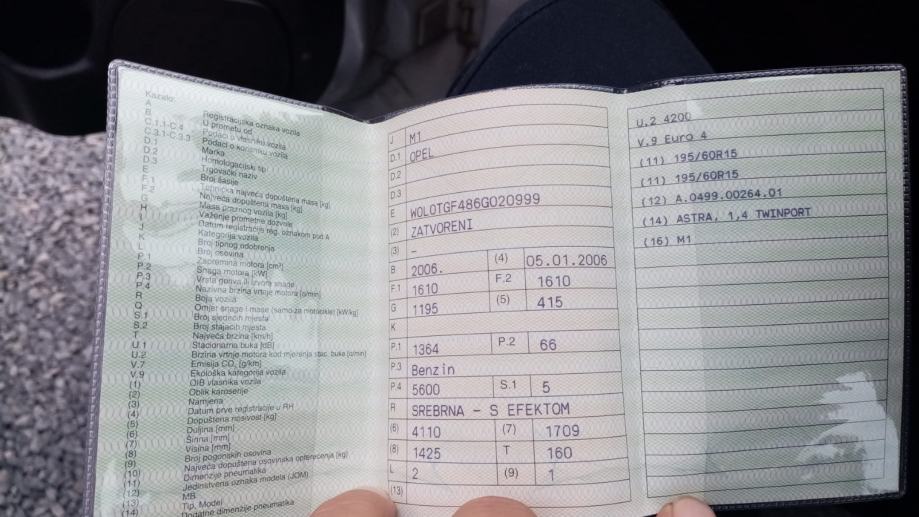 Kazalo:
A Registracijska oznaka vozila
B U prometu od
C.1.1-C.4 Podaci o vlasniku vozila
C.3.1-C.3.3 Podaci o korisniku vozila
D.1 Marka
D.2 Homologacijski tip
D.3 Trgovački naziv
E Broj šasije
F.1 Tehnička najveća dopuštena masa [kg]
F.2 Najveća dopuštena masa [kg]
G Masa praznog vozila [kg]
H Važenje prometne dozvole
I Datum registracije reg. oznakom pod A
J Kategorija vozila
K Broj tipnog odobrenja
L Broj osovina
P.1 Zapremina motora [cm³]
P.2 Snaga motora [kW]
P.3 Vrsta goriva ili izvora snage
P.4 Nazivna brzina vrtnje motora [o/min]
R Boja vozila
Q Omjer snage i mase (samo za motocikle) [kW/kg]
S.1 Broj sjedećih mjesta
S.2 Broj stajaćih mjesta
T Najveća brzina [km/h]
U.1 Stacionarna buka [dB]
U.2 Brzina vrtnje motora kod mjerenja stac. buke [o/min]
V.7 Emisija CO₂ [g/km]
V.9 Ekološka kategorija vozila
(1) OIB vlasnika vozila
(2) Oblik karoserije
(3) Namjena
(4) Datum prve registracije u RH
(5) Dopuštena nosivost [kg]
(6) Duljina [mm]
(7) Širina [mm]
(8) Visina [mm]
(9) Broj pogonskih osovina
(10) Najveća dopuštena osovinska opterećenja [kg]
(11) Dimenzije pneumatika
(12) Jedinstvena oznaka modela (JOM)
(13) MB
(14) Tip, Model
Dodatne dimenzije pneumatika
J M1
D.1 OPEL
D.2
D.3
E WOLOTGF486G020999
(2) ZATVORENI
(3) –
B 2006. (4) 05.01.2006
F.1 1610 F.2 1610
G 1195 (5) 415
K
P.1 1364 P.2 66
P.3 Benzin
P.4 5600 S.1 5
R SREBRNA – S EFEKTOM
(6) 4110 (7) 1709
(8) 1425 T 160
L 2 (9) 1
(13)
U.2 4200
V.9 Euro 4
(11) 195/60R15
(11) 195/60R15
(12) A.0499.00264.01
(14) ASTRA, 1,4 TWINPORT
(16) M1